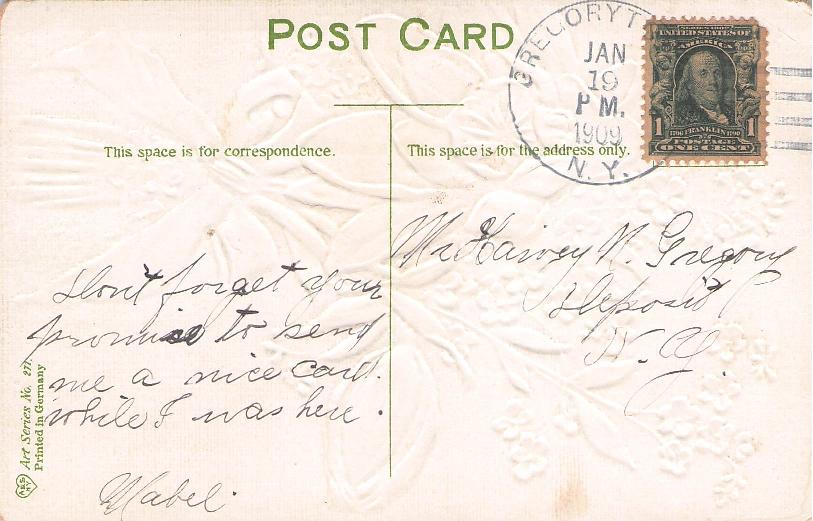 POST CARD
GREGORYT
JAN
19
P M.
1909
N. Y.
SERIES 1902
UNITED STATES OF
AMERICA
1 1706 FRANKLIN 1790 1
POSTAGE
ONE CENT
This space is for correspondence.
This space is for the address only.
Dont forget your
promise to send
me a nice card.
while I was here.
Mabel.
Mr Harvey N. Gregory
Deposit
N. Y.
Art Series No. 277.
Printed in Germany